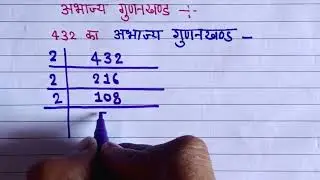 अभाज्य गुणनखण्ड ÷
432 का अभाज्य गुणनखण्ड -
2 432
2 216
2 108